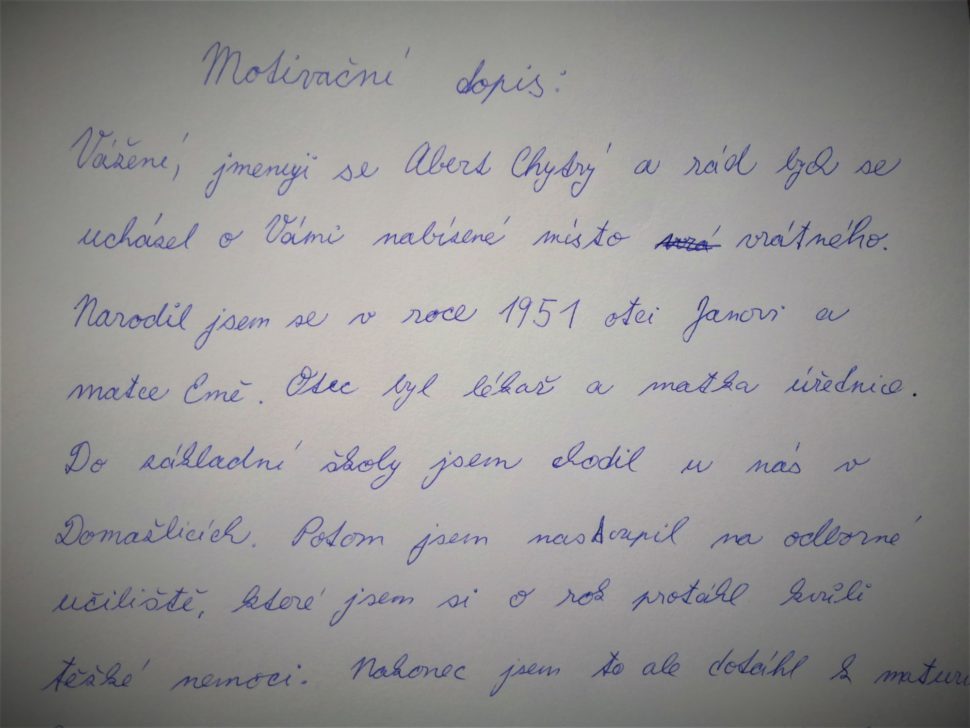 Motivační dopis:
Vážení, jmenuji se Abert Chytrý a rád bych se
ucházel o Vámi nabízené místo vrátného.
Narodil jsem se v roce 1951 otci Janovi a
matce Emě. Otec byl lékař a matka úřednice.
Do základní školy jsem chodil u nás v
Domažlicích. Potom jsem nastoupil na odborné
učiliště, které jsem si o rok protáhl kvůli
těžké nemoci. Nakonec jsem to ale dotáhl k maturi